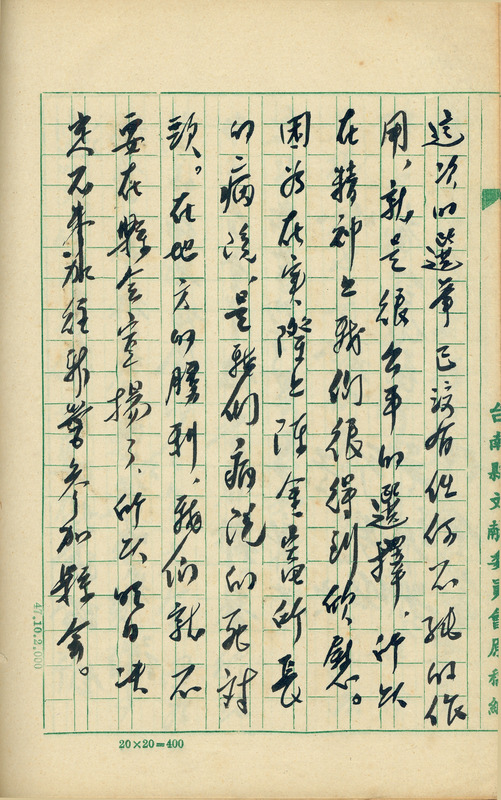 台南縣文獻委員會原稿紙
這次的選舉已沒有任何不純的作
用，就是很公平的選擇，所以
在精神上我們很得到欣慰。
因為在實際上陳金當所長
的病院，是我們病院的死對
頭。在地方的勝利，我們就不
要在縣會宣揚了，所以明日決
定不來參加縣會。
20×20=400
47.10.2,000